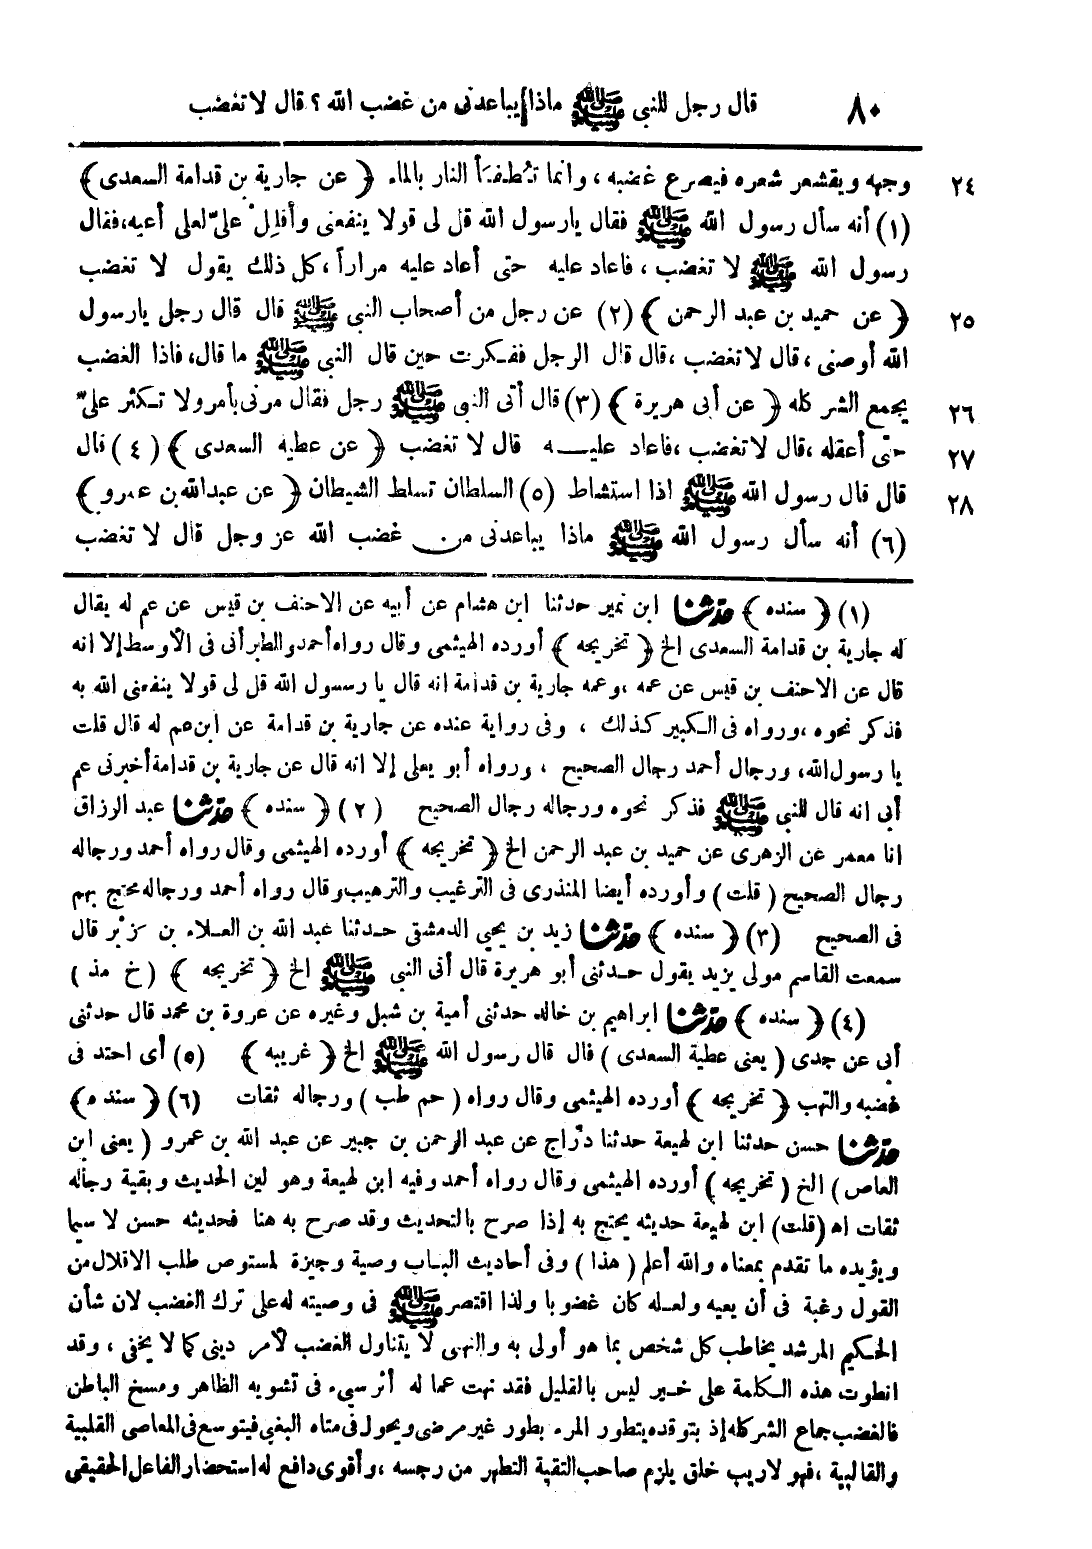 ٨٠ قال رجل للنبي ﷺ ماذا يباعدنى من غضب الله ؟ قال لا تغضب
٢٤ وجهه ويقشعر شعره فيصرع غضبه ، وانما تُطفَأ النار بالماء ﴿ عن جارية بن قدامة السعدى ﴾
(١) أنه سأل رسول الله ﷺ فقال يارسول الله قل لى قولا ينفعنى وأقلِلْ علىّ لعلى أعيه، فقال
رسول الله ﷺ لا تغضب ، فاعاد عليه حتى أعاد عليه مراراً ، كل ذلك يقول لا تغضب
٢٥ ﴿ عن حميد بن عبد الرحمن ﴾ (٢) عن رجل من أصحاب النبى ﷺ قال قال رجل يارسول
الله أوصنى ، قال لا تغضب ، قال قال الرجل ففكرت حين قال النبى ﷺ ما قال، فاذا الغضب
٢٦ يجمع الشر كله ﴿ عن أبى هريرة ﴾ (٣) قال أتى النبى ﷺ رجل فقال مرنى بأمر ولا تكثر علىّ
٢٧ حتى أعقله ، قال لا تغضب ، فاعاد عليـــه قال لا تغضب ﴿ عن عطيه السعدى ﴾ (٤) قال
٢٨ قال قال رسول الله ﷺ اذا استشاط (٥) السلطان تسلط الشيطان ﴿ عن عبدالله بن عمرو ﴾
(٦) أنه سأل رسول الله ﷺ ماذا يباعدنى من غضب الله عز وجل قال لا تغضب
(١) ﴿ سنده ﴾ حدثنا ابن نمير حدثنا ابن هشام عن أبيه عن الاحنف بن قيس عن عم له يقال
له جارية بن قدامة السعدى الخ ﴿ تخريجه ﴾ أورده الهيثمى وقال رواه أحمد والطبرانى فى الأوسط إلا انه
قال عن الاحنف بن قيس عن عمه ، وعمه جارية بن قدامة انه قال يا رسول الله قل لى قولا ينفعنى الله به
فذكر نحوه ، ورواه فى الكبير كذلك ، وفى رواية عنده عن جارية بن قدامة عن ابن عم له قال قلت
يا رسول الله، ورجال أحمد رجال الصحيح ، ورواه أبو يعلى إلا انه قال عن جارية بن قدامة أخبرنى عم
أبى انه قال للنبى ﷺ فذكر نحوه ورجاله رجال الصحيح (٢) ﴿ سنده ﴾ حدثنا عبد الرزاق
انا معمر عن الزهرى عن حميد بن عبد الرحمن الخ ﴿ تخريجه ﴾ أورده الهيثمى وقال رواه أحمد ورجاله
رجال الصحيح ( قلت ) وأورده أيضا المنذرى فى الترغيب والترهيب وقال رواه أحمد ورجاله محتج بهم
فى الصحيح (٣) ﴿ سنده ﴾ حدثنا زيد بن يحيى الدمشقى حدثنا عبد الله بن العلاء بن زبْر قال
سمعت القاسم مولى يزيد يقول حدثنى أبو هريرة قال أتى النبى ﷺ الخ ﴿ تخريجه ﴾ ( خ مذ )
(٤) ﴿ سنده ﴾ حدثنا ابراهيم بن خالد حدثنى أمية بن شبل وغيره عن عروة بن محمد قال حدثنى
أبى عن جدى ( يعنى عطية السعدى ) قال قال رسول الله ﷺ الخ ﴿ غريبه ﴾ (٥) أى احتد فى
غضبه والتهب ﴿ تخريجه ﴾ أورده الهيثمى وقال رواه ( حم طب ) ورجاله ثقات (٦) ﴿ سنده ﴾
حدثنا حسن حدثنا ابن لهيعة حدثنا درّاج عن عبد الرحمن بن جبير عن عبد الله بن عمرو ( يعنى ابن
العاص ) الخ ﴿ تخريجه ﴾ أورده الهيثمى وقال رواه أحمد وفيه ابن لهيعة وهو لين الحديث وبقية رجاله
ثقات اه (قلت) ابن لهيعة حديثه يحتج به إذا صرح بالتحديث وقد صرح به هنا فحديثه حسن لا سيما
ويؤيده ما تقدم بمعناه والله أعلم ( هذا ) وفى أحاديث البـاب وصية وجيزة لمستوص طلب الاقلال من
القول رغبة فى أن يعيه ولعله كان غضوبا ولذا اقتصر ﷺ فى وصيته له على ترك الغضب لان شأن
الحكيم المرشد يخاطب كل شخص بما هو أولى به والنهى لا يتناول الغضب لأمر دينى كما لا يخفى ، وقد
انطوت هذه الكلمة على خير ليس بالقليل فقد نهت عما له أثر سىء فى تشويه الظاهر ومسخ الباطن
فالغضب جماع الشر كله إذ بتوقده يتطور المرء بطور غير مرضى ويحول فى متاه البغى فيتوسع فى المعاصى القلبية
والقالبية ، فهو لاريب خلق يلزم صاحب التقية التطهر من رجسه ، وأقوى دافع له استحضار الفاعل الحقيقى